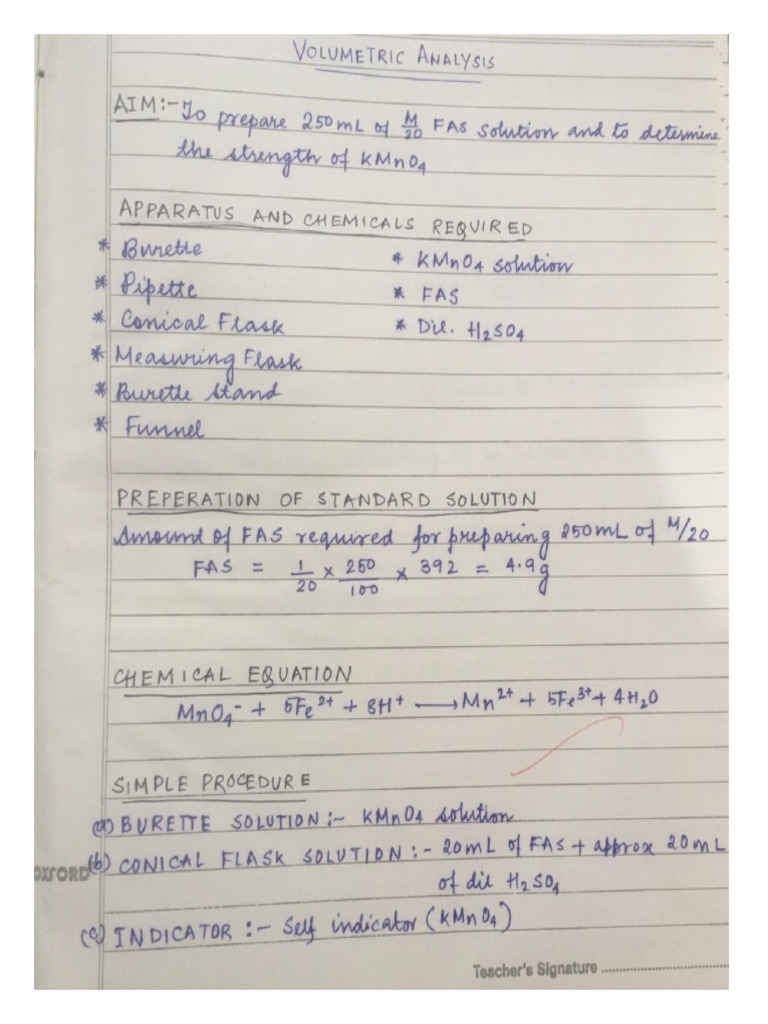 VOLUMETRIC ANALYSIS
AIM:- To prepare 250mL of M/20 FAS solution and to determine
the strength of KMnO4
APPARATUS AND CHEMICALS REQUIRED
* Burette
* KMnO4 solution
* Pipette
* FAS
* Conical Flask
* Dil. H2SO4
* Measuring Flask
* Burette stand
* Funnel
PREPERATION OF STANDARD SOLUTION
Amount of FAS required for preparing 250mL of M/20
FAS = 1/20 × 250/100 × 392 = 4.9g
CHEMICAL EQUATION
MnO4- + 5Fe2+ + 8H+ → Mn2+ + 5Fe3+ + 4H2O
SIMPLE PROCEDURE
(a) BURETTE SOLUTION:- KMnO4 solution
(b) CONICAL FLASK SOLUTION:- 20mL of FAS + approx 20mL
OXFORD
of dil H2SO4
(c) INDICATOR:- Self indicator (KMnO4)
Teacher's Signature ..............................